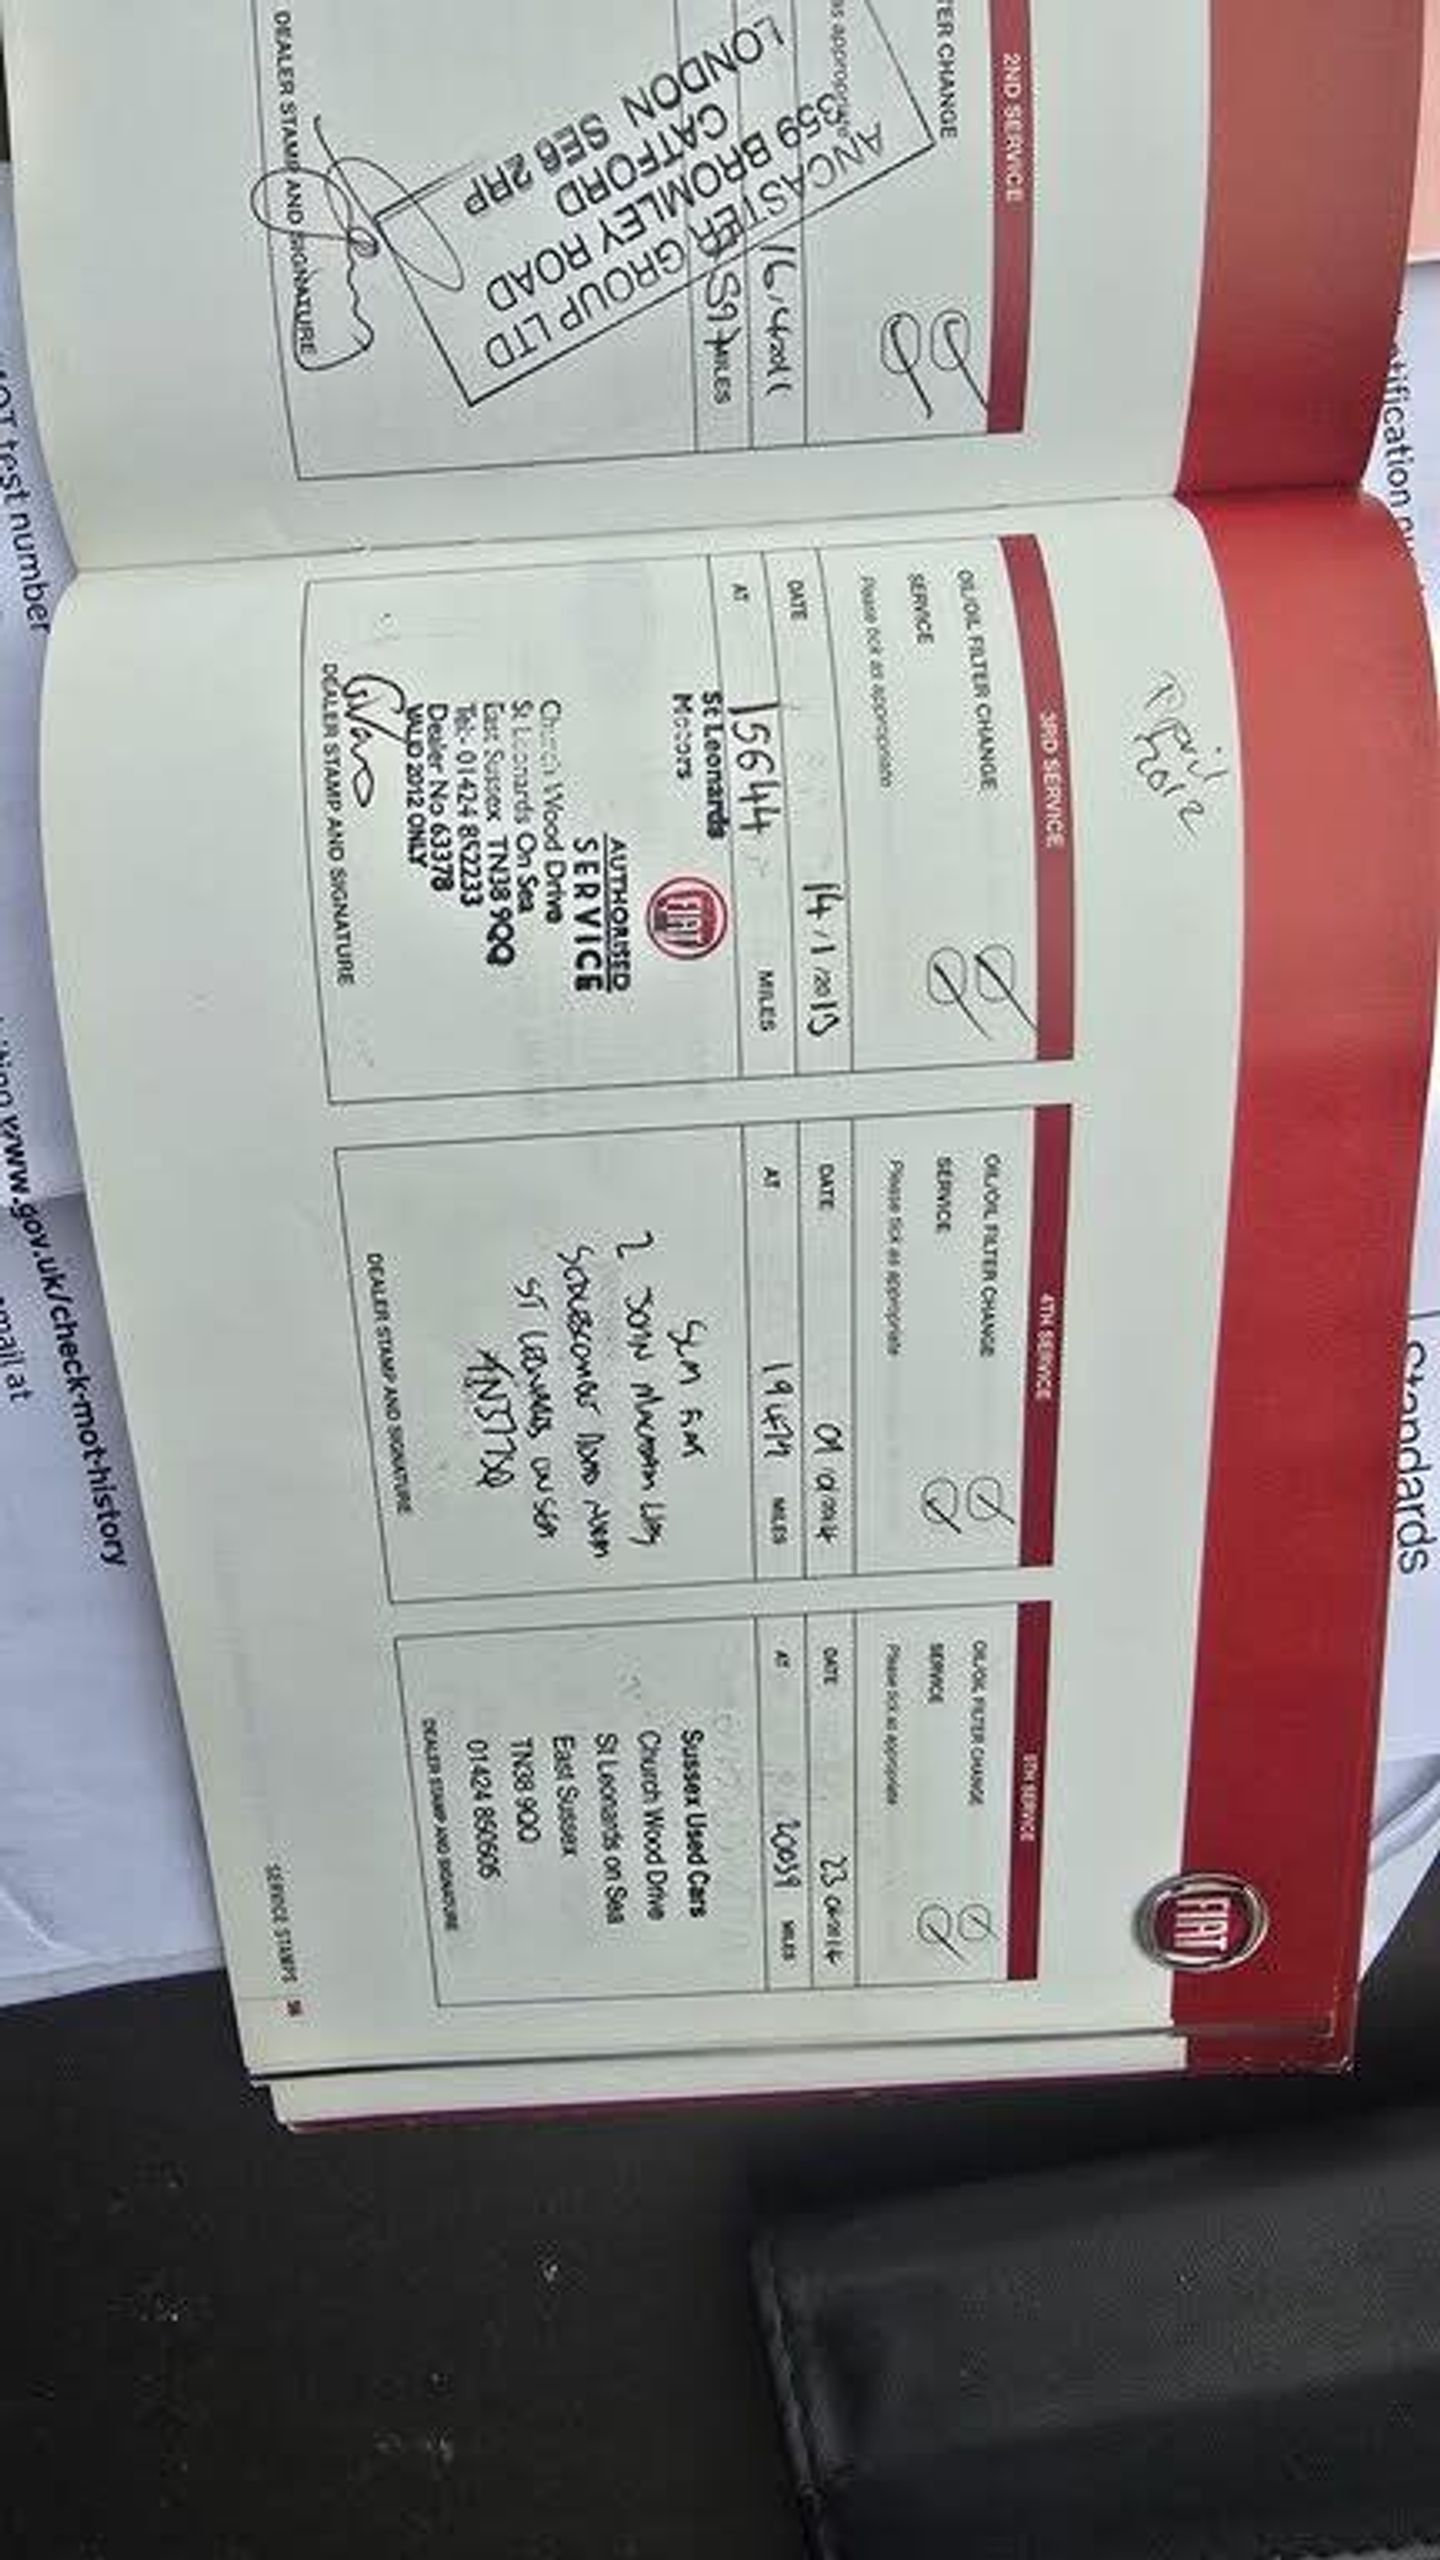 2ND SERVICE
TER CHANGE
as appropriate
16/4/2011
MILES
ANCASTER GROUP LTD
359 BROMLEY ROAD
CATFORD
LONDON SE6 2RP
DEALER STAMP AND SIGNATURE
April
2012
3RD SERVICE
OIL/OIL FILTER CHANGE
SERVICE
Please tick as appropriate
DATE 14/1/2013
AT 15644 MILES
St Leonards
Motors
FIAT
AUTHORISED
SERVICE
Church Wood Drive
St Leonards On Sea
East Sussex TN38 9QQ
Tel: 01424 852233
Dealer No 63378
VALID 2012 ONLY
DEALER STAMP AND SIGNATURE
4TH SERVICE
OIL/OIL FILTER CHANGE
SERVICE
Please tick as appropriate
DATE
AT MILES
2 JOHN
ST LEONARDS ON SEA
DEALER STAMP AND SIGNATURE
5TH SERVICE
OIL/OIL FILTER CHANGE
SERVICE
Please tick as appropriate
DATE 23
AT 20039 MILES
Sussex Used Cars
Church Wood Drive
St Leonards on Sea
East Sussex
TN38 9QQ
01424 850605
DEALER STAMP AND SIGNATURE
FIAT
SERVICE STAMPS
MOT test number
www.gov.uk/check-mot-history
email at
Standards